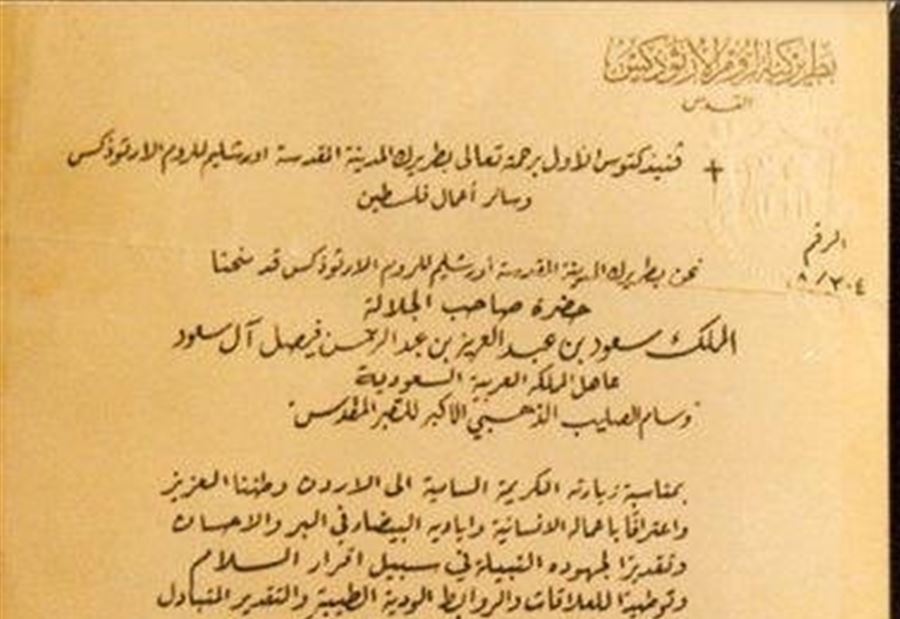 بطريركية الروم الارثوذكس
القدس
+ ڤنيذكتوس الاول برحمة تعالى بطريرك المدينة المقدسة اورشليم للروم الارثوذكس
وسائر أعمال فلسطين
الرقم
٨/٢٠٤
نحن بطريرك المدينة المقدسة أورشليم للروم الارثوذكس قد منحنا
حضرة صاحب الجلالة
الملك سعود بن عبد العزيز بن عبد الرحمن فيصل آل سعود
عاهل المملكة العربية السعودية
"وسام الصليب الذهبي الاكبر للقبر المقدس"
بمناسبة زيارته الكريمة السامية الى الاردن وطننا العزيز
واعترافًا باعماله الانسانية واياديه البيضاء في البر والاحسان
وتقديرًا لجهوده النبيلة في سبيل اقرار السلام
وتوطيدًا للعلاقات والروابط الودية الطيبة والتقدير المتبادل